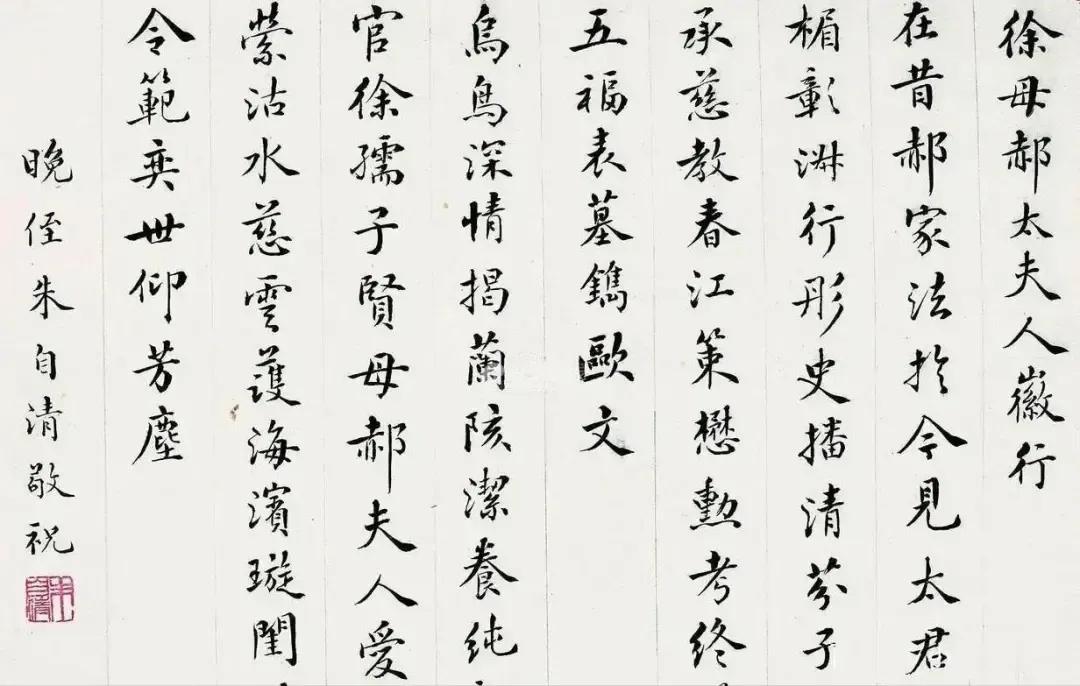 徐母郝太夫人徽行
在昔郝家法於今見太君
楣彰淑行彤史播清芬子
承慈教春江策懋勳考終
五福表墓鐫歐文
烏鳥深情揭蘭陔潔養純
官徐孺子賢母郝夫人愛
縈沽水慈雲護海濱璇閨
令範奕世仰芳塵
晚侄朱自清敬祝
朱自清